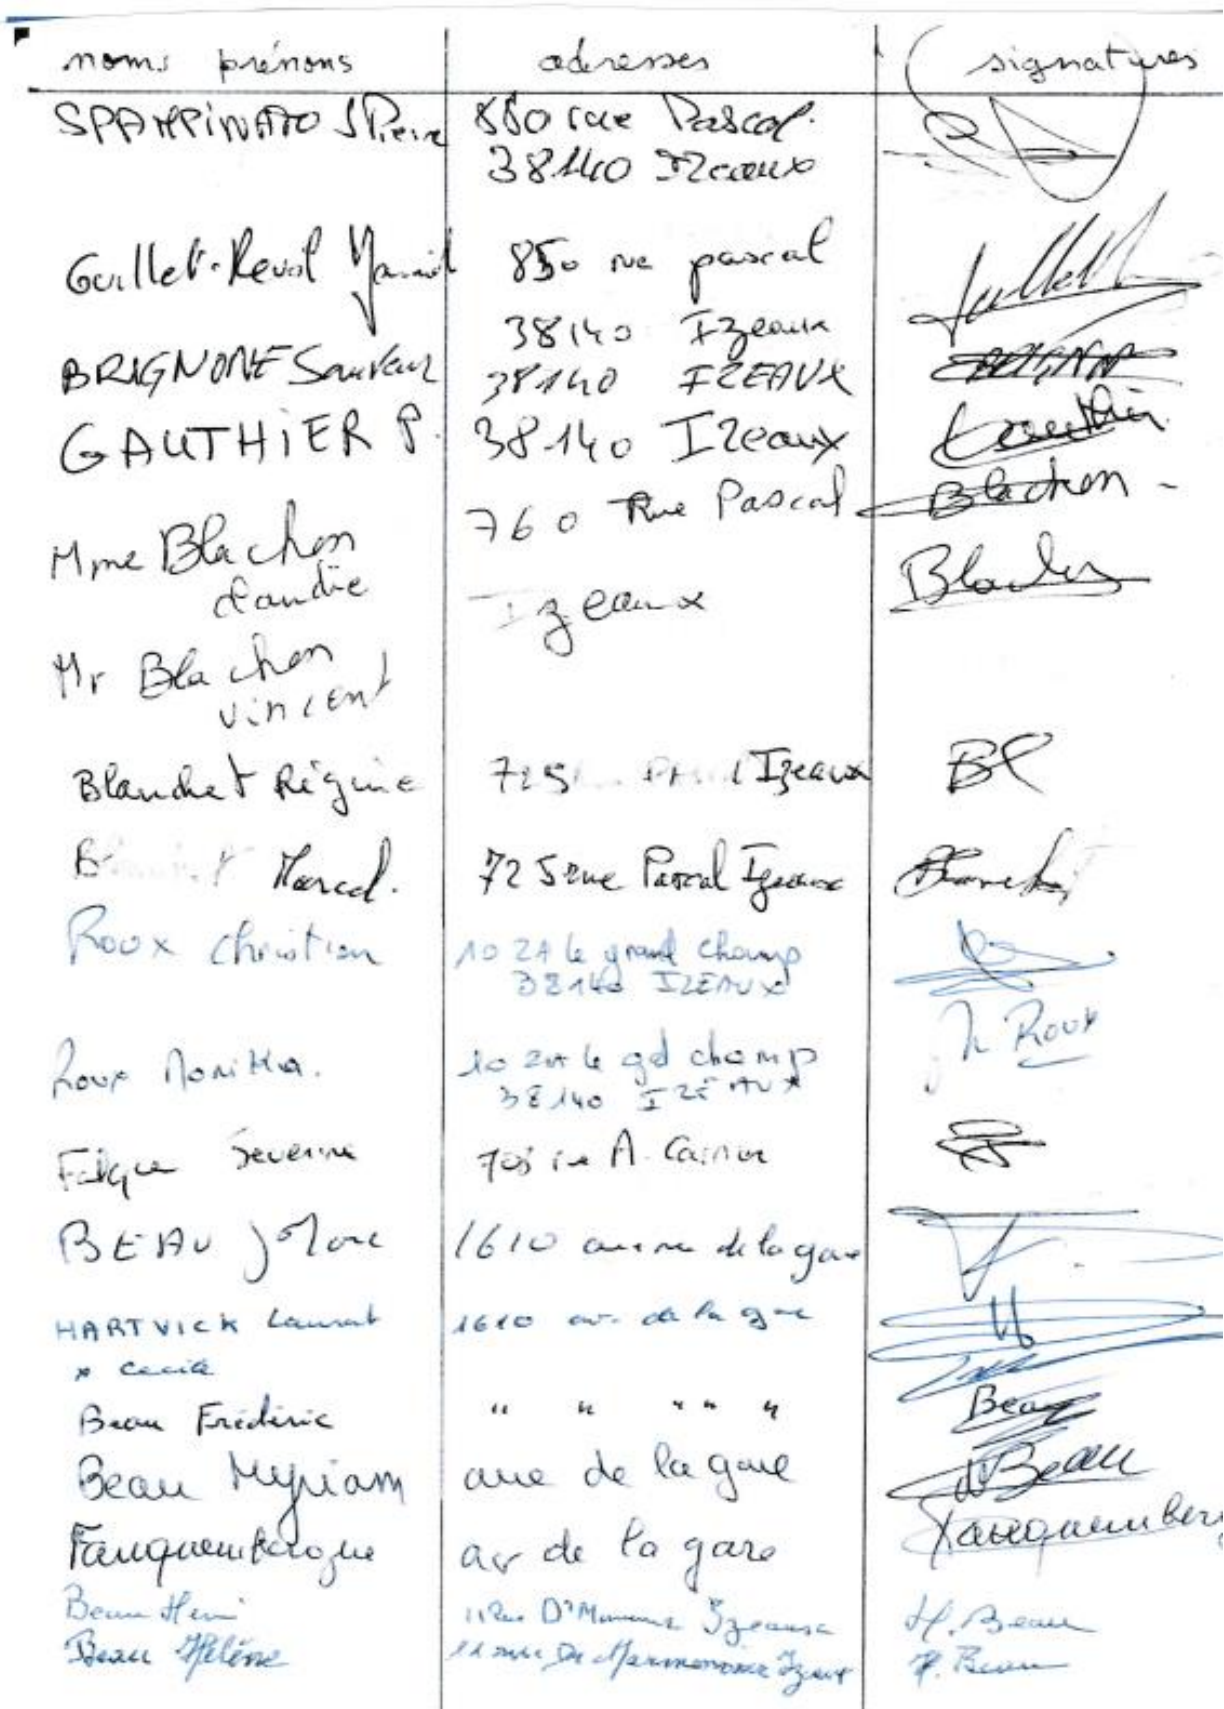 noms prénoms adresses signatures
SPAMPINATO JPierre 850 rue Pascal.
38140 Izeaux
Guillet-Revol 850 rue pascal
38140 Izeaux
BRIGNONE Sauveur 38140 IZEAUX
GAUTHIER P. 38140 Izeaux Gauthier
760 Rue Pascal Blachon
Mme Blachon
Claudie Izeaux Blachon
Mr Blachon
Vincent
Blanchet Régine 725 Izeaux BR
Marcel. 725 rue Pascal Izeaux Blanchet
Roux Christian 10 ZA le grand champ
38140 IZEAUX
Roux Monika. 10 ZA le gd champ M Roux
38140 IZEAUX
Falque Séverine A.
BEAU JMarc 1610 avenue de la gare
HARTVICK Laurent 1610 av. de la gare
x Cecile
Beau Frédéric " " " " " Beau
Beau Myriam ave de la gare MBeau
Fauquembergue av de la gare Fauquemberg
Beau Henri 11 Rue Izeaux H. Beau
Beau Hélène 11 rue H. Beau